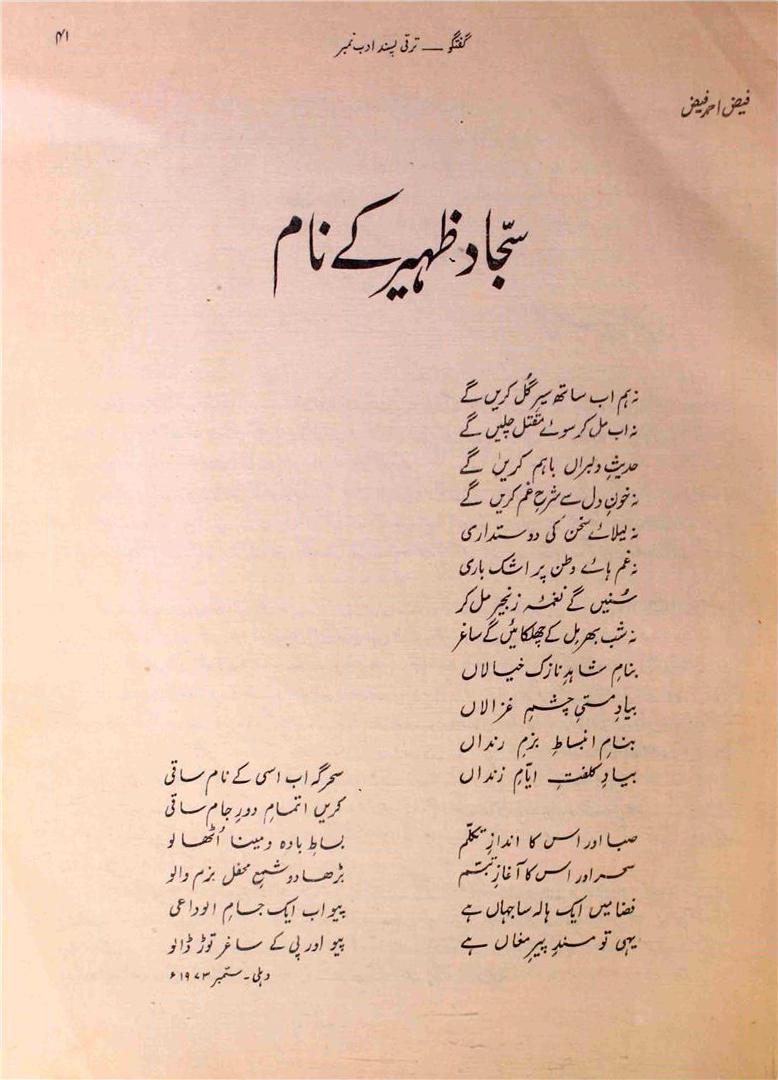 گفتگو — ترقی پسند ادب نمبر
۴۱
فیض احمد فیض
سجّاد ظہیر کے نام
نہ ہم اب ساتھ سیرِ گُل کریں گے
نہ اب مل کر سوئے مقتل چلیں گے
حدیثِ دلبراں باہم کریں گے
نہ خونِ دل سے شرحِ غم کریں گے
نہ لیلائے سخن کی دوستداری
نہ غم ہائے وطن پر اشک باری
سُنیں گے نغمۂ زنجیر مل کر
نہ شب بھر مِل کے چھلکائیں گے ساغر
بنامِ شاہدِ نازک خیالاں
بیادِ مستیِ چشمِ غزالاں
بنامِ انبساطِ بزمِ رنداں
بیادِ کلفتِ ایّامِ زنداں
صبا اور اس کا اندازِ تکلّم
سحر اور اس کا آغازِ تبسّم
فضا میں ایک ہالہ سا جہاں ہے
یہی تو مسندِ پیرِ مغاں ہے
سحرگہ اب اسی کے نام ساقی
کریں اتمامِ دورِ جام ساقی
بساطِ بادہ و مینا اُٹھا لو
بڑھا دو شمعِ محفل بزم والو
پیو اب ایک جامِ الوداعی
پیو اور پی کے ساغر توڑ ڈالو
دہلی ۔ ستمبر ۱۹۷۳ء